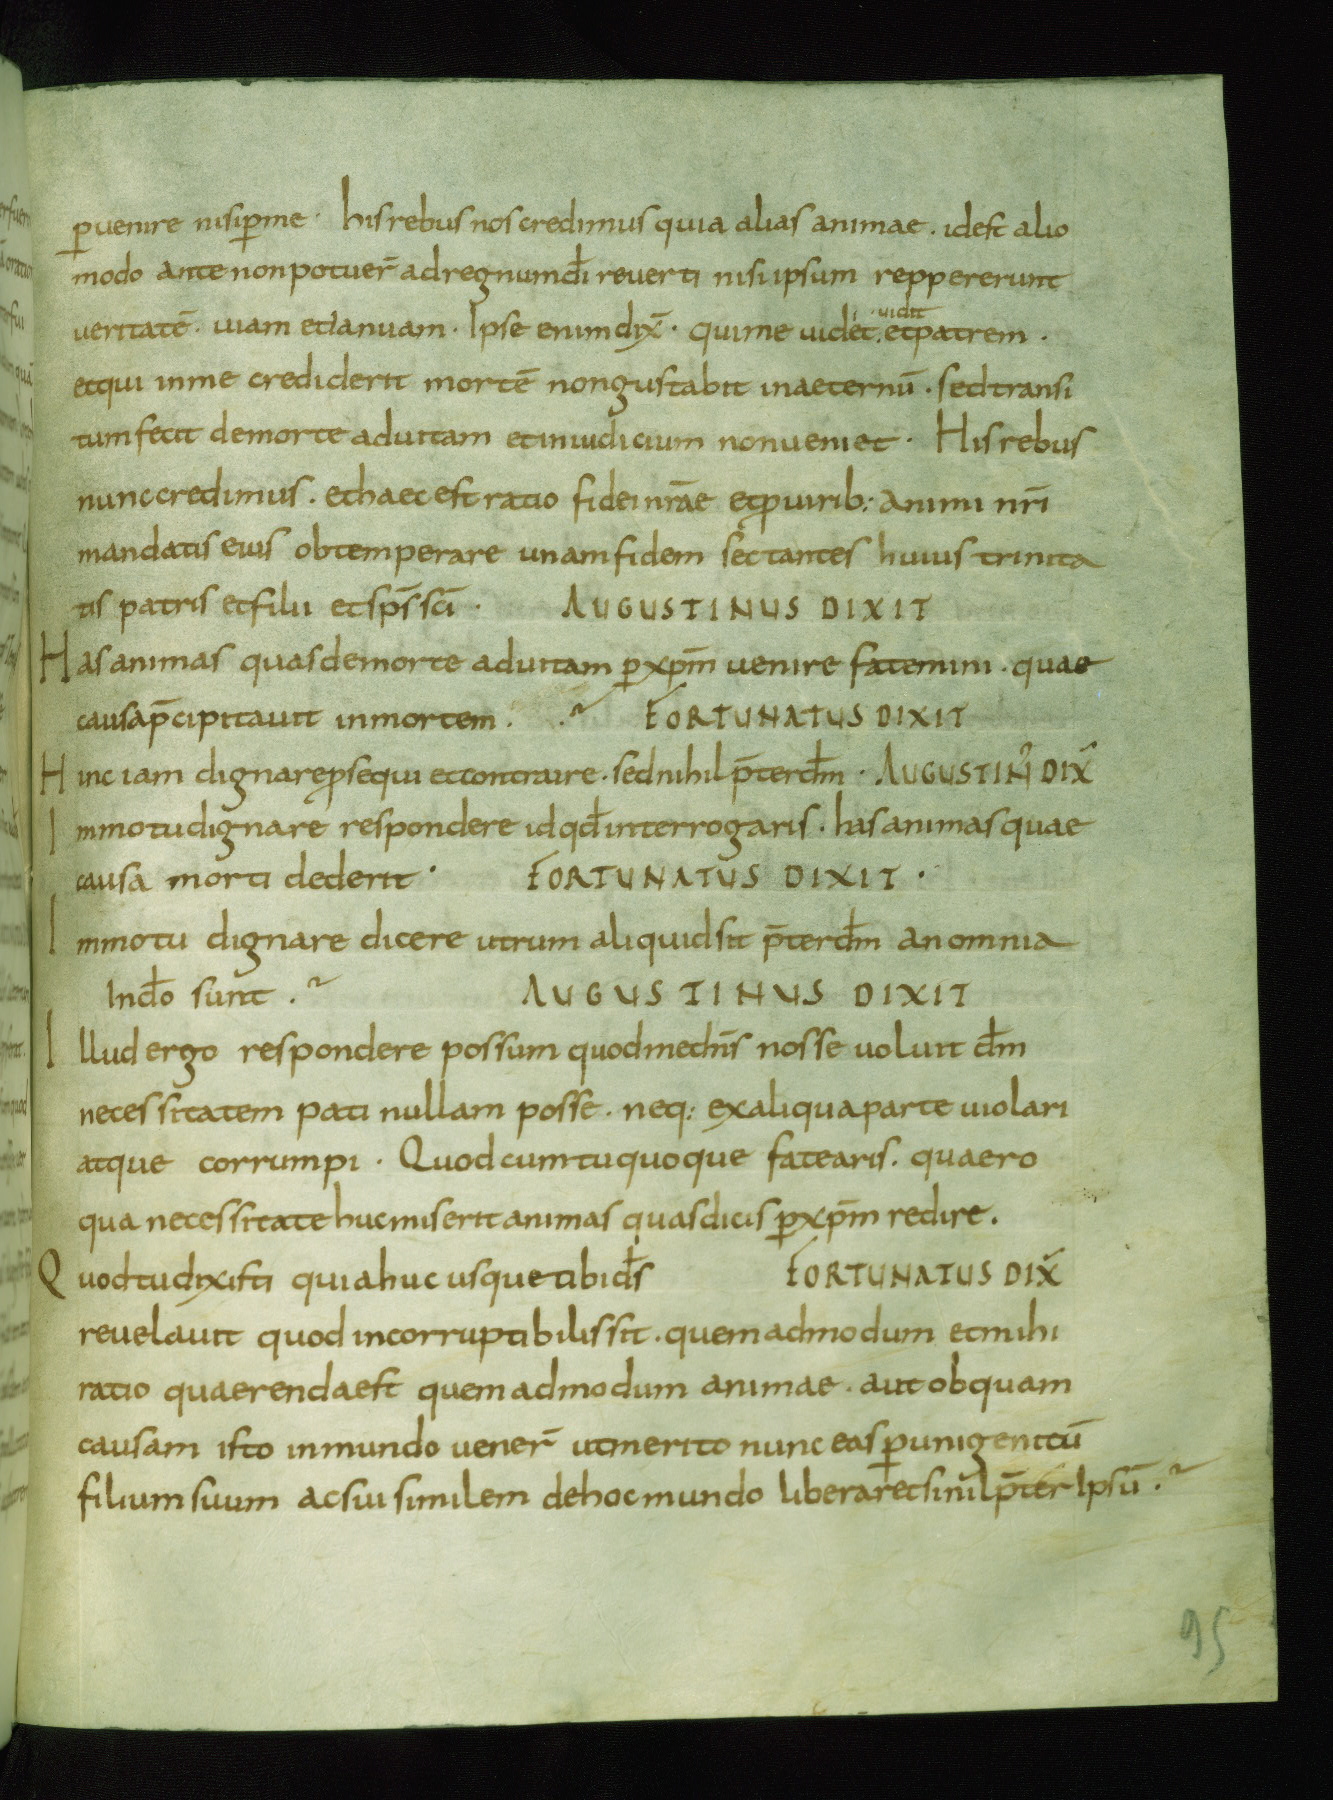 ꝑuenire nisi ꝑme · his rebus nos credimus quia alias animae . idest alio
modo ante non potuer̄ ad regnum dı̄ reuerti nisi ipsum reppererunt
ueritatē . uiam et ianuam · Ipse enim dix̄ · qui me uidet . uidit et patrem .
et qui in me crediderit mortē non gustabit in aeternū . sed transi
tum fecit de morte ad uitam et in iudicium non ueniet · His rebus
nunc credimus . et haec est ratio fidei nr̄ae et ꝓ uirib: animi nr̄i
mandatis eius obtemperare unam fidem sectantes huius trinita
tis patris et filii et sp̄s sc̄i · AUGUSTINUS DIXIT
Has animas quas de morte ad uitam ꝑ xp̄m uenire fatemini . quae
causa p̄cipitauit in mortem . FORTUNATUS DIXIT
Hinc iam dignare ꝓsequi et contraire . sed nihil p̄ter dm̄ · AUGUSTIN̄ DIX̄
Immo tu dignare respondere id qd̄ interrogaris . has animas quae
causa morti dederit · FORTUNATUS DIXIT .
Immo tu dignare dicere utrum aliquid sit p̄ter dm̄ an omnia
In dō sunt . AUGUSTINUS DIXIT
Illud ergo respondere possum quod me dn̄s nosse uoluit dm̄
necessitatem pati nullam posse . neq: ex aliqua parte uiolari
atque corrumpi . Quod cum tu quoque fatearis . quaero
qua necessitate huc miserit animas quas dicis ꝑ xp̄m redire .
Quod tu dixisti quia huc usque tibi ds̄ FORTUNATUS DIX̄
reuelauit quod incorruptibilis sit . quemadmodum et mihi
ratio quaerenda est quemadmodum animae . aut ob quam
causam isto in mundo uener̄ ut merito nunc eas ꝑ unigenitū
filium suum ac sui similem de hoc mundo liberaret si nihil p̄ter Ipsū .
95